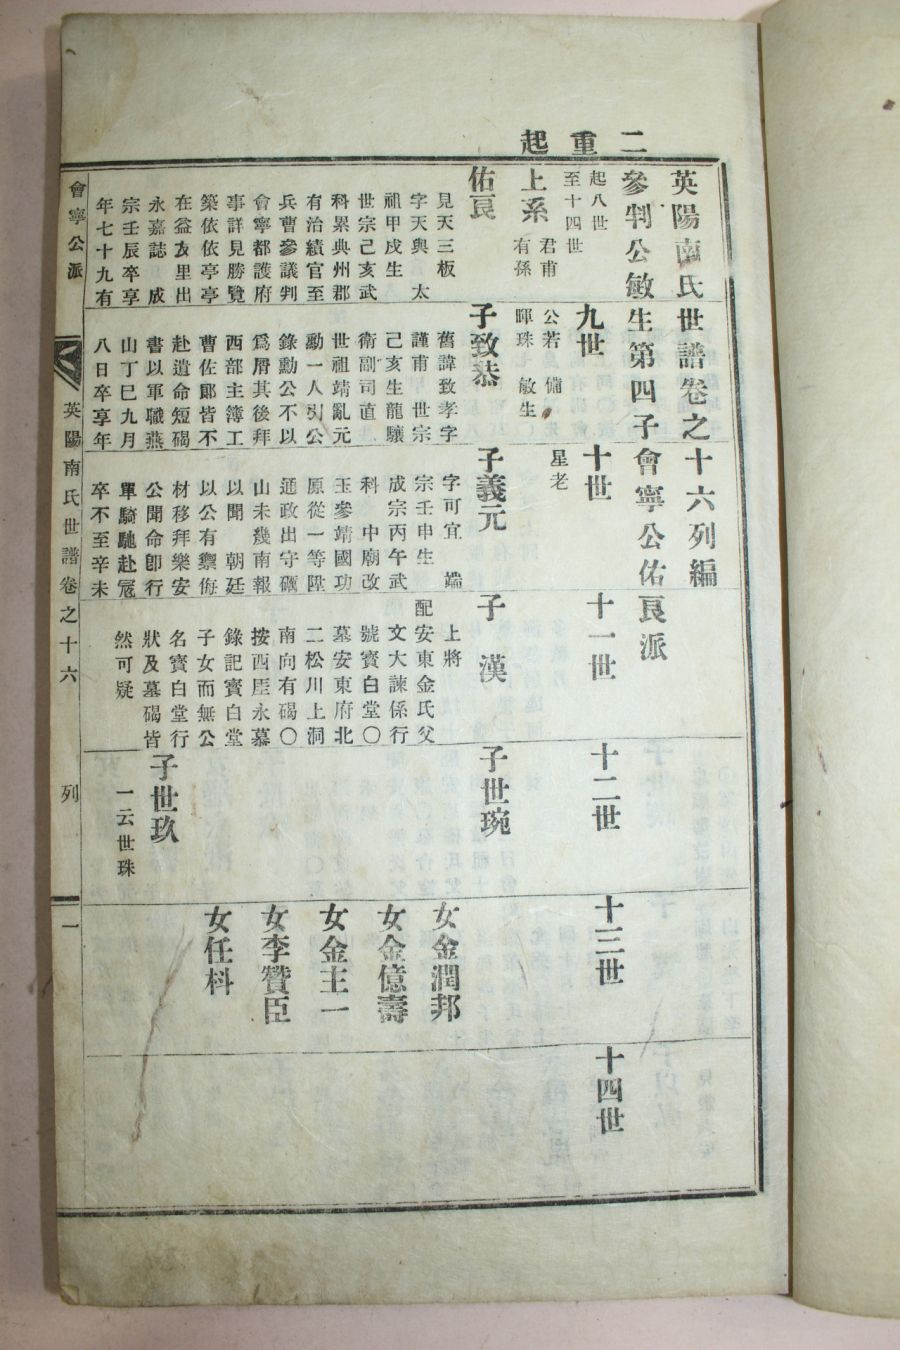 二重起
英陽南氏世譜卷之十六列編
參判公敏生第四子會寧公佑良派
起八世
至十四世
九世
十世
十一世
十二世
十三世
十四世
上系
君甫
有孫
公若 傭
暉珠 敏生
星老
佑良
見天三板
字天與 太
祖甲戌生
世宗己亥武
科累典州郡
有治績官至
兵曹參議判
會寧都護府
事詳見勝覽
築依依亭亭
在益友里出
永嘉誌 成
宗壬辰卒享
年七十九有
子致恭
舊諱致孝字
謹甫 世宗
己亥生龍驤
衛副司直
世祖靖亂元
勳一人引公
錄勳公不以
爲屑其後拜
西部主簿工
曹佐郞皆不
赴遺命短碣
書以軍職燕
山丁巳九月
八日卒享年
子義元
字可宜 端
宗壬申生
成宗丙午武
科 中廟改
玉參靖國功
原從一等陞
通政出守礪
山未幾南報
以聞 朝廷
以公有禦侮
材移拜樂安
公聞命卽行
單騎馳赴寇
卒不至辛未
子 漢
上將
配安東金氏父
文大諫係行
號寶白堂〇
墓安東府北
二松川上洞
南向有碣〇
按西厓永慕
錄記寶白堂
子女而無公
名寶白堂行
狀及墓碣皆
然可疑
子世琬
子世玖
一云世珠
女金潤邦
女金億壽
女金主一
女李贊臣
女任科
會寧公派
英陽南氏世譜卷之十六
列
一